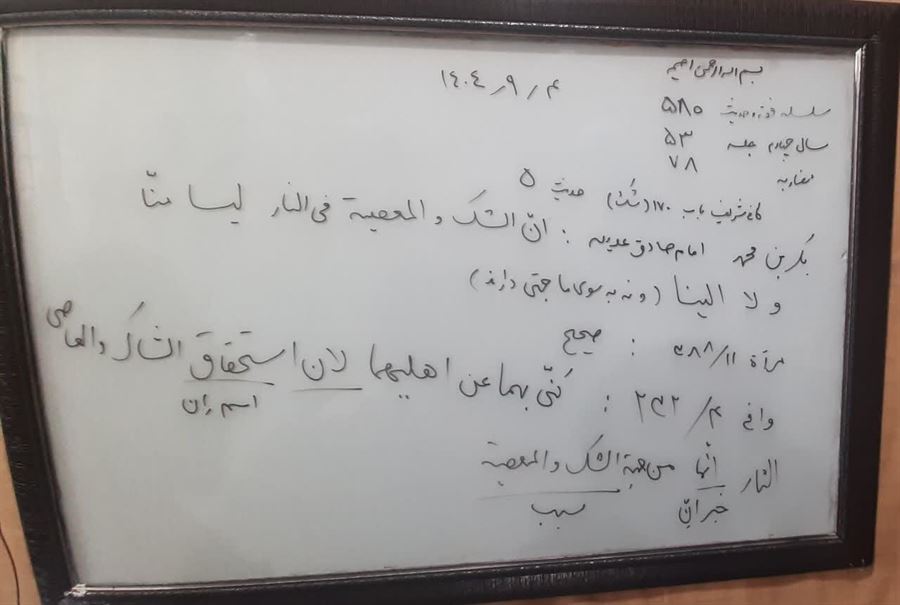 بسم الله الرحمن الرحیم
۱۴۰۴٫۹٫۴
سلسله فقه و حدیث ۵۸۰
سال چهارم جلسه ۵۳
۷۸
کافی شریف باب ۱۷۰ (شک) حدیث ۵
بکر بن محمد امام صادق علیه السلام : انّ الشک و المعصیة فی النار لیسا منّا
و لا الینا (و نه به سوی ما حجتی دارند)
مرآة ۱۱/ : صحیح
وافی ۴/ : کَنّی بهما عن اهلیهما لان استحقاق الشاک و العاصی
اسم إن
النار انّما من جهة الشک و المعصیة
خبر انّ
سبب